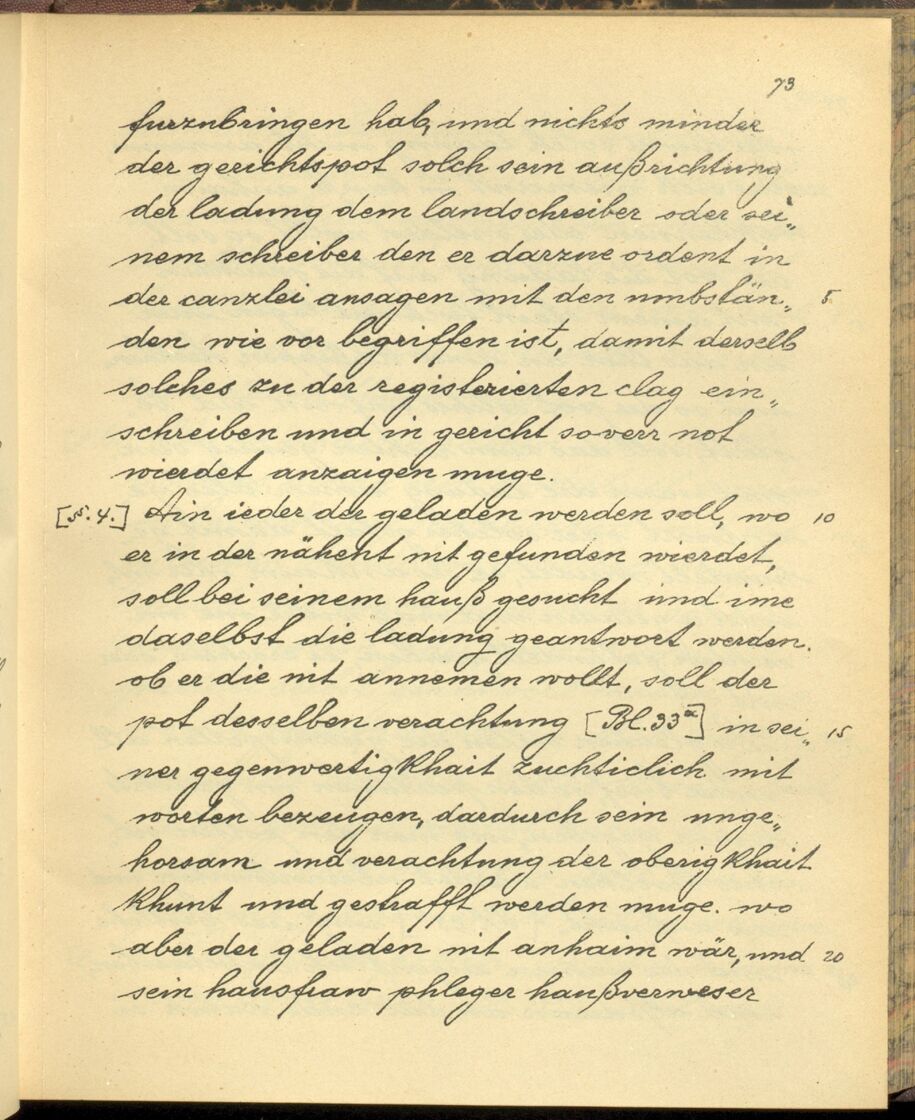 73
furzubringen hab, und nichts minder
der gerichtspot solch sein außrichtung
der ladung dem landschreiber oder sei„
nem schreiber den er darzue ordent in
der canzlei ansagen mit den umbstän„ 5
den wie vor begriffen ist, damit derselb
solches zu der registerierten clag ein„
schreiben und in gericht soverr not
wierdet anzaigen muge.
[§. 4.] Ain ieder der geladen werden soll, wo 10
er in der nähent nit gefunden wierdet,
soll bei seinem hauß gesucht und ime
daselbst die ladung geantwort werden.
ob er die nit annemen wollt, soll der
pot desselben verachtung [Bl. 33a] in sei„ 15
ner gegenwertigkhait zuchticlich mit
worten bezeugen, dardurch sein unge„
horsam und verachtung der oberigkhait
khunt und gestrafft werden muge. wo
aber der geladen nit anhaim wär, und 20
sein hausfraw phleger haußverweser